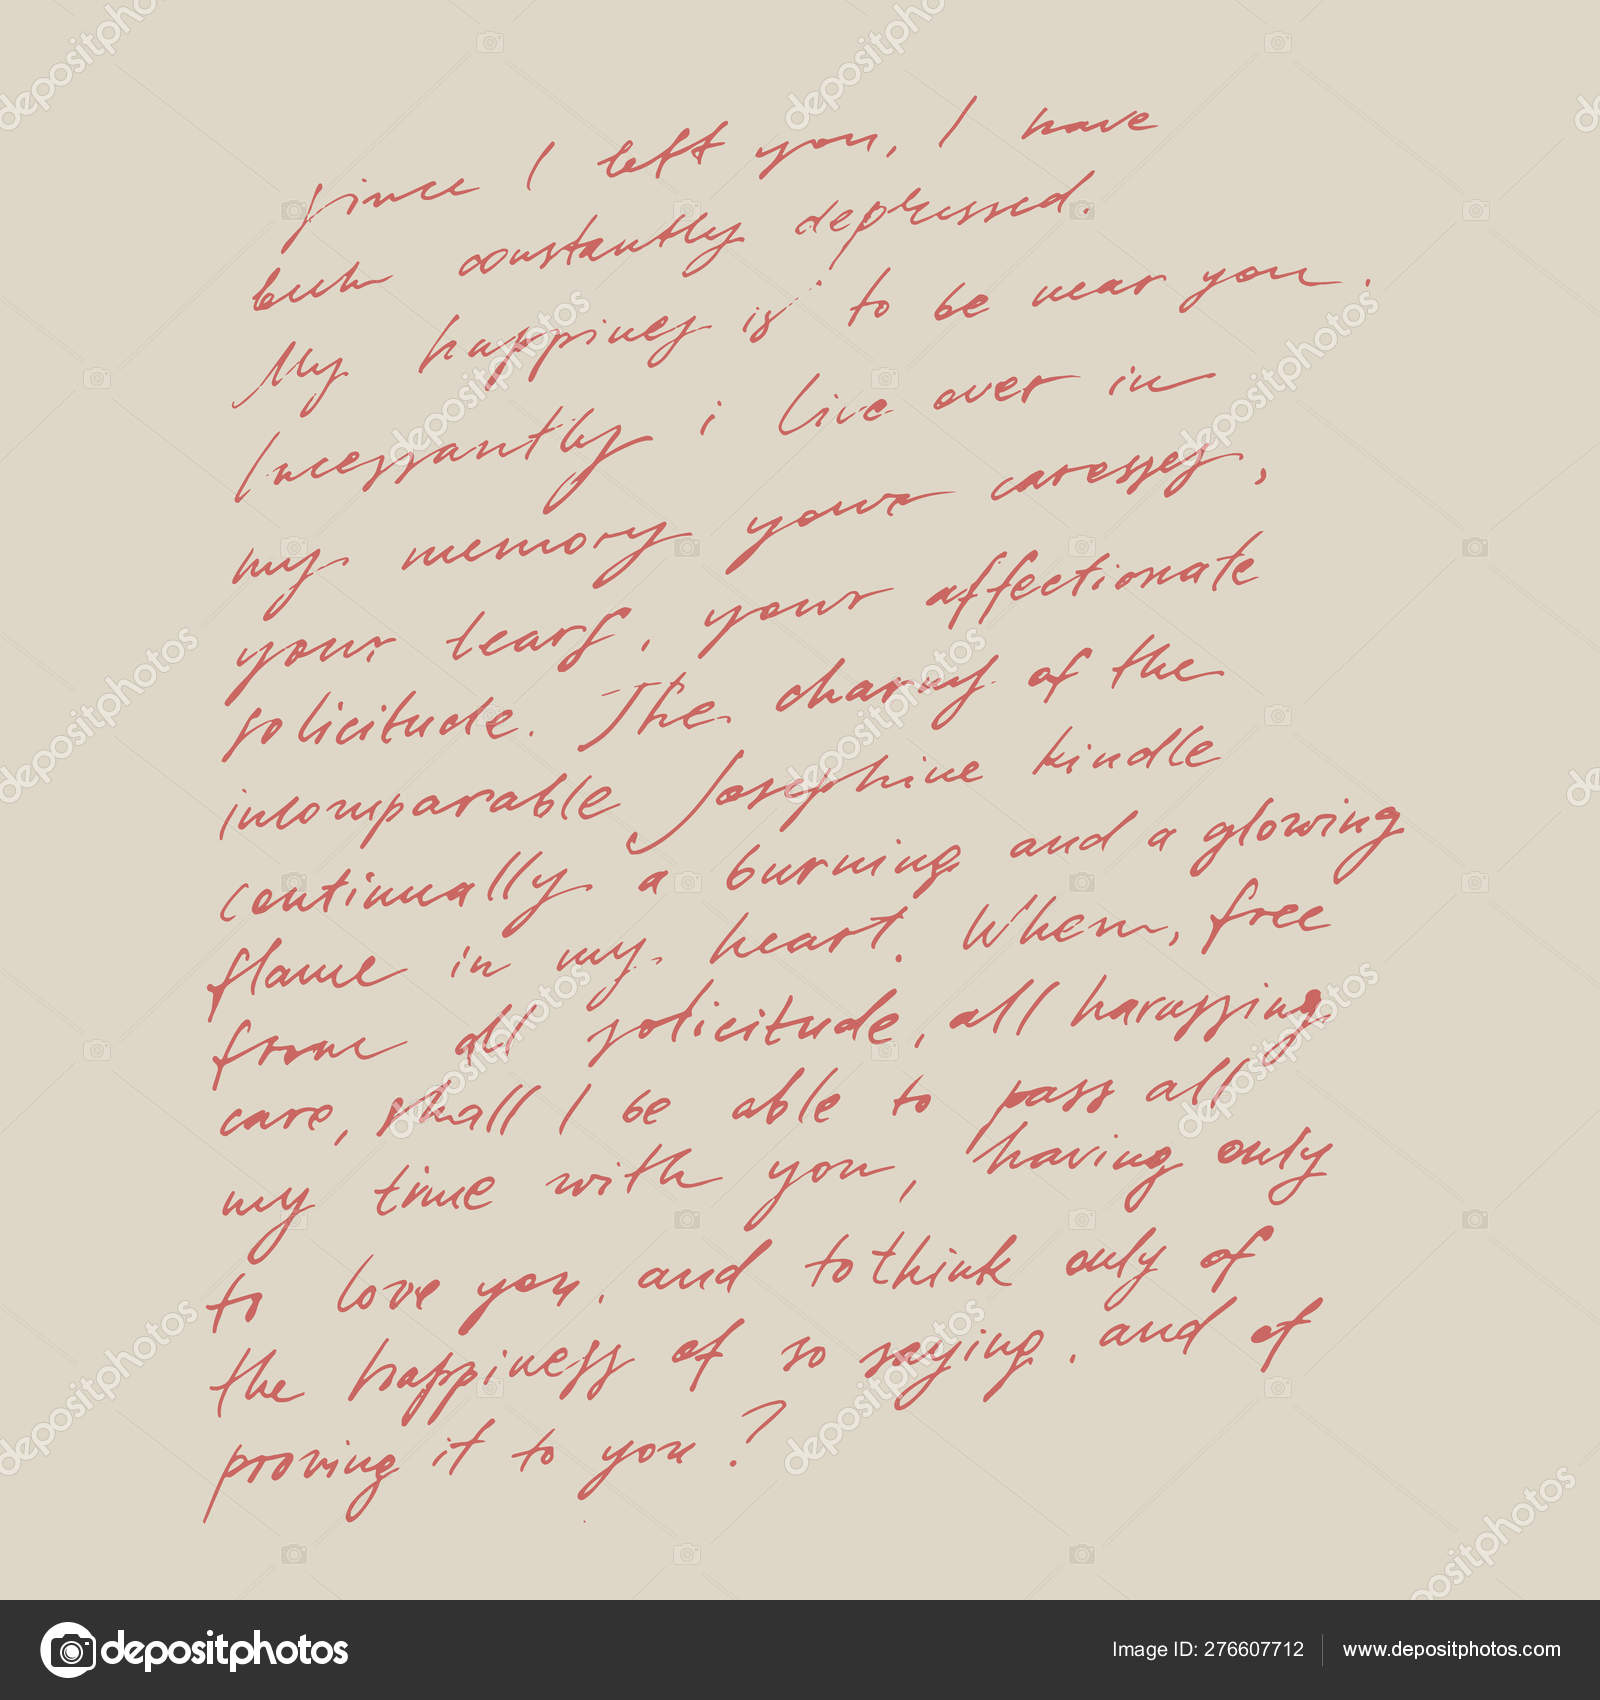 Since I left you, I have
been constantly depressed.
My happines is to be near you.
Incessantly i live over in
my memory your caresses,
your tears, your affectionate
solicitude. The charms of the
incomparable Josephine kindle
continually a burning and a glowing
flame in my heart. When, free
from all solicitude, all harassing
care, shall I be able to pass all
my time with you, having only
to love you, and to think only of
the happiness of so saying, and of
proving it to you?
depositphotos
Image ID: 276607712 www.depositphotos.com